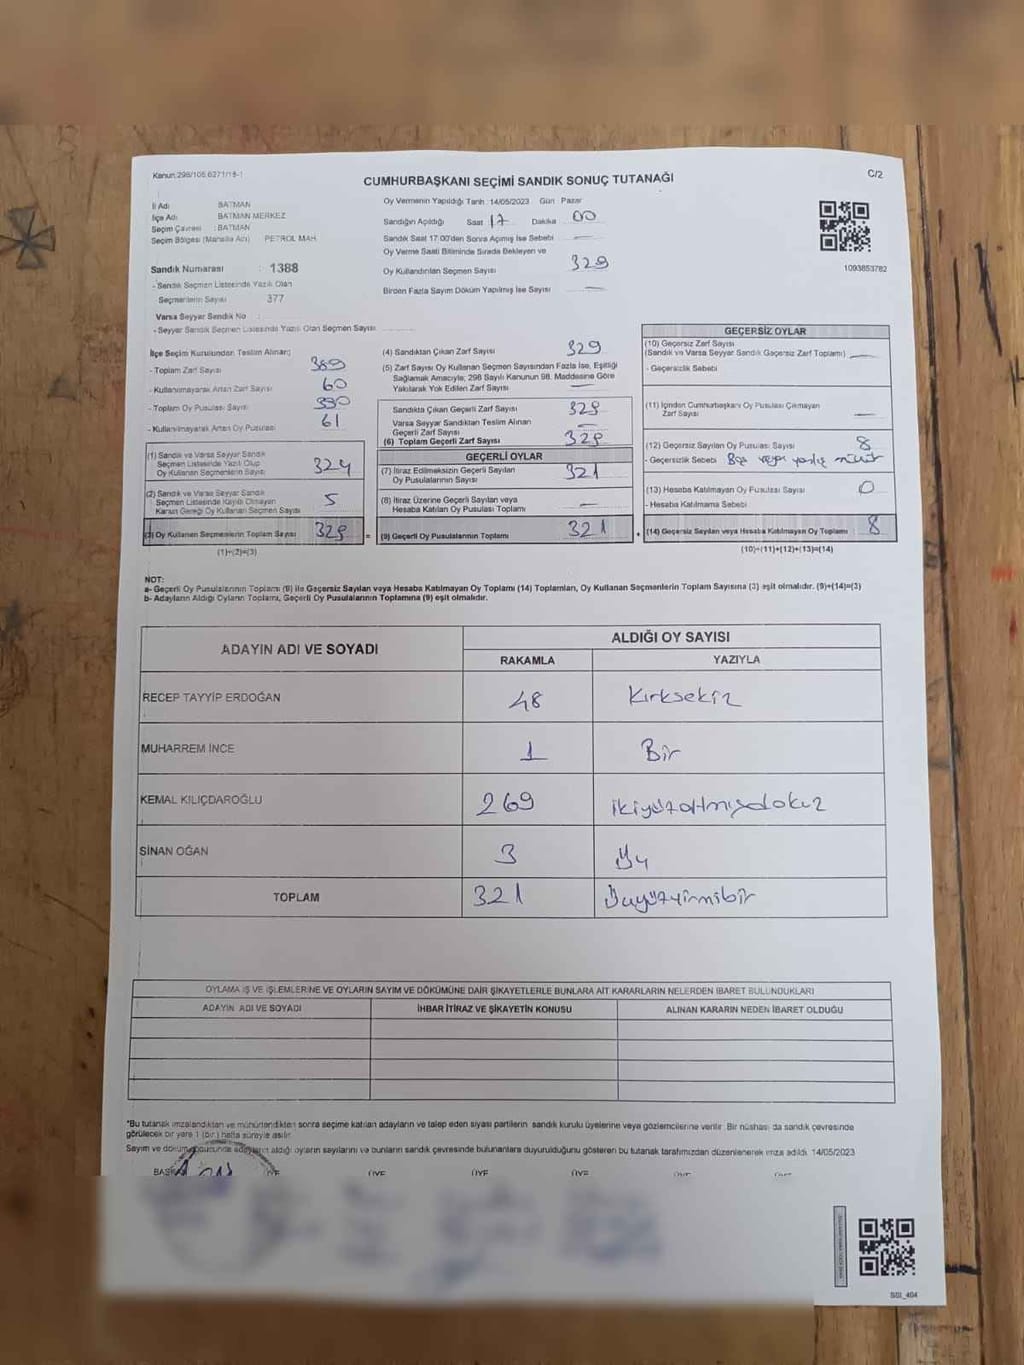 Kanun:298/105,6271/18-1
C/2
CUMHURBAŞKANI SEÇİMİ SANDIK SONUÇ TUTANAĞI
İl Adı BATMAN
İlçe Adı BATMAN MERKEZ
Seçim Çevresi : BATMAN
Seçim Bölgesi (Mahalle Adı) PETROL MAH.
Sandık Numarası : 1388
- Sandık Seçmen Listesinde Yazılı Olan
Seçmenlerin Sayısı 377
Varsa Seyyar Sandık No :
- Seyyar Sandık Seçmen Listesinde Yazılı Olan Seçmen Sayısı
Oy Vermenin Yapıldığı Tarih :14/05/2023 Gün Pazar
Sandığın Açıldığı Saat 17 Dakika 00
Sandık Saat 17:00'den Sonra Açılmış İse Sebebi —
Oy Verme Saati Bitiminde Sırada Bekleyen ve
Oy Kullandırılan Seçmen Sayısı 329
Birden Fazla Sayım Döküm Yapılmış İse Sayısı —
1093853782
İlçe Seçim Kurulundan Teslim Alınan;
- Toplam Zarf Sayısı 389
- Kullanılmayarak Artan Zarf Sayısı 60
- Toplam Oy Pusulası Sayısı 390
- Kullanılmayarak Artan Oy Pusulası 61
(1) Sandık ve Varsa Seyyar Sandık
Seçmen Listesinde Yazılı Olup
Oy Kullanan Seçmenlerin Sayısı 324
(2) Sandık ve Varsa Seyyar Sandık
Seçmen Listesinde Kayıtlı Olmayan
Kanun Gereği Oy Kullanan Seçmen Sayısı 5
(3) Oy Kullanan Seçmenlerin Toplam Sayısı 329
(1)+(2)=(3)
(4) Sandıktan Çıkan Zarf Sayısı 329
(5) Zarf Sayısı Oy Kullanan Seçmen Sayısından Fazla İse, Eşitliği
Sağlamak Amacıyla; 298 Sayılı Kanunun 98. Maddesine Göre
Yakılarak Yok Edilen Zarf Sayısı —
Sandıkta Çıkan Geçerli Zarf Sayısı 329
Varsa Seyyar Sandıktan Teslim Alınan
Geçerli Zarf Sayısı —
(6) Toplam Geçerli Zarf Sayısı 329
GEÇERLİ OYLAR
(7) İtiraz Edilmeksizin Geçerli Sayılan
Oy Pusulalarının Sayısı 321
(8) İtiraz Üzerine Geçerli Sayılan veya
Hesaba Katılan Oy Pusulası Toplamı —
(9) Geçerli Oy Pusulalarının Toplamı 321
GEÇERSİZ OYLAR
(10) Geçersiz Zarf Sayısı
(Sandık ve Varsa Seyyar Sandık Geçersiz Zarf Toplamı) —
- Geçersizlik Sebebi
(11) İçinden Cumhurbaşkanı Oy Pusulası Çıkmayan
Zarf Sayısı —
(12) Geçersiz Sayılan Oy Pusulası Sayısı 8
- Geçersizlik Sebebi Boş veya yanlış mühür
(13) Hesaba Katılmayan Oy Pusulası Sayısı 0
- Hesaba Katılmama Sebebi
(14) Geçersiz Sayılan veya Hesaba Katılmayan Oy Toplamı 8
(10)+(11)+(12)+(13)=(14)
NOT:
a- Geçerli Oy Pusulalarının Toplamı (9) ile Geçersiz Sayılan veya Hesaba Katılmayan Oy Toplamı (14) Toplamları, Oy Kullanan Seçmenlerin Toplam Sayısına (3) eşit olmalıdır. (9)+(14)=(3)
b- Adayların Aldığı Oyların Toplamı, Geçerli Oy Pusulalarının Toplamına (9) eşit olmalıdır.
ADAYIN ADI VE SOYADI
ALDIĞI OY SAYISI
RAKAMLA YAZIYLA
RECEP TAYYİP ERDOĞAN 48 Kırksekiz
MUHARREM İNCE 1 Bir
KEMAL KILIÇDAROĞLU 269 ikiyüzaltmışdokuz
SİNAN OĞAN 3 Üç
TOPLAM 321 Üçyüzyirmibir
OYLAMA İŞ VE İŞLEMLERİNE VE OYLARIN SAYIM VE DÖKÜMÜNE DAİR ŞİKAYETLERLE BUNLARA AİT KARARLARIN NELERDEN İBARET BULUNDUKLARI
ADAYIN ADI VE SOYADI İHBAR İTİRAZ VE ŞİKAYETİN KONUSU ALINAN KARARIN NEDEN İBARET OLDUĞU
*Bu tutanak imzalandıktan ve mühürlendikten sonra seçime katılan adayların ve talep eden siyasi partilerin sandık kurulu üyelerine veya gözlemcilerine verilir. Bir nüshası da sandık çevresinde
görülecek bir yere 1 (bir) hafta süreyle asılır.
Sayım ve döküm sonucunda adayların aldığı oyların sayılarını ve bunların sandık çevresinde bulunanlara duyurulduğunu gösteren bu tutanak tarafımızdan düzenlenerek imza edildi. 14/05/2023
ÜYE ÜYE ÜYE ÜYE ÜYE
SSI_404